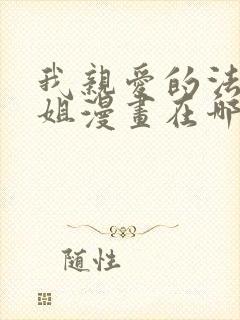 我親愛的法
姐漫畫在哪
随性